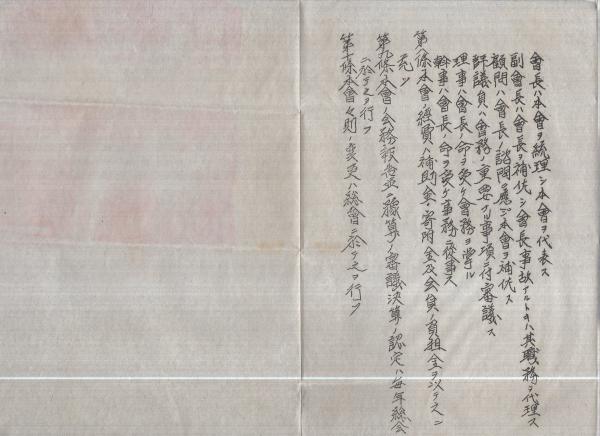 會長ハ本會ヲ統理シ本會ヲ代表ス
副會長ハ會長ヲ補佐シ會長事故アルトキハ其職務ヲ代理ス
顧問ハ會長ノ諮問ニ應ジ本會ヲ補佐ス
評議員ハ會務ノ重要ナル事項ニ付審議ス
理事ハ會長ノ命ヲ受ケ會務ヲ掌ル
幹事ハ會長ノ命ヲ受ケ事務ニ從事ス
第八條本會ノ經費ハ補助金、寄附金及会員ノ負担金ヲ以テ之ニ
充ツ
第九條本會ノ会務報告並ニ豫算ノ審議決算ノ認定ハ毎年総会
ニ於テ之ヲ行フ
第十條本會々則ノ変更ハ総會ニ於テ之ヲ行フ